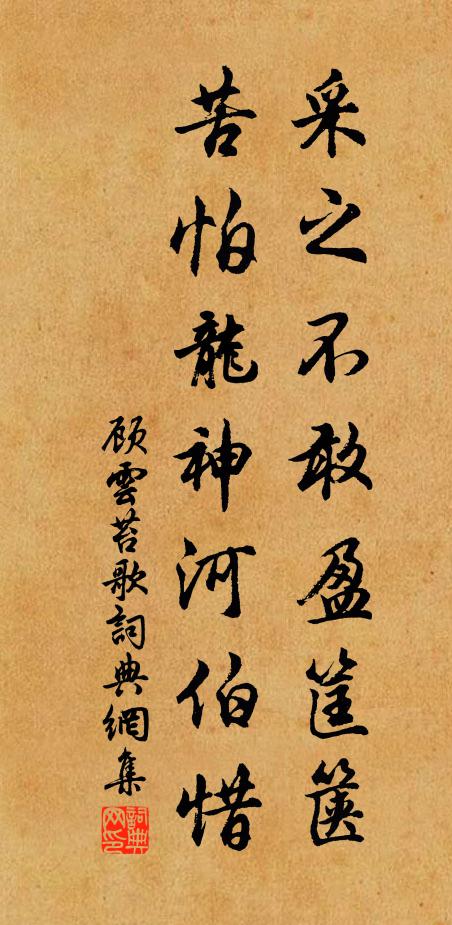 采之不敢盈筐篋
苦怕龍神河伯惜
顾雲苔歌詞典網集
詞典网印